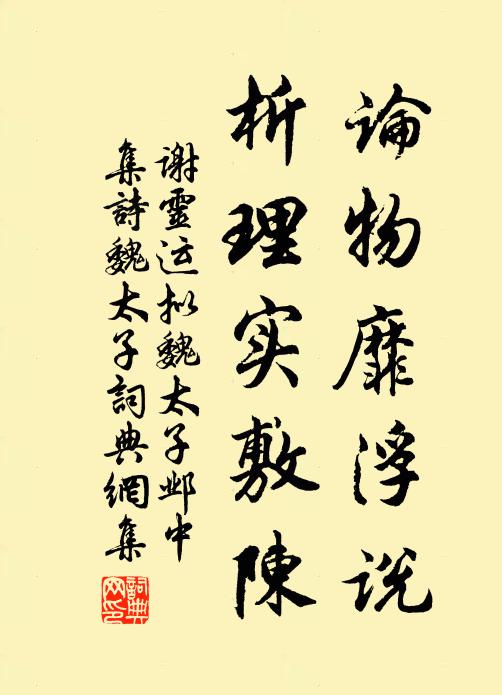 論物靡浮说
析理实敷陳
谢靈运拟魏太子邺中
集詩魏太子詞典網集
詞典
网印